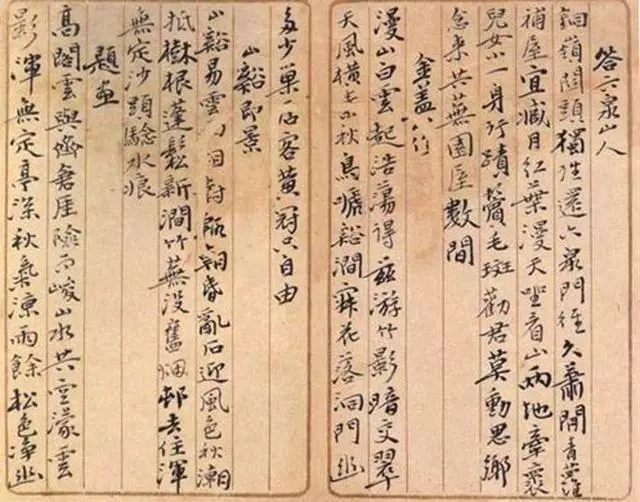 答六泉山人
銅嶺關頭獨往還六泉門徑久蕭閒青蘿
補屋宜減月紅葉漫天坐看山兩地牽
兒女一身行蹟鬢毛斑勸君莫動思鄉
念來共蕪園屋數間
金蓋
漫山白雲起浩蕩得茲游竹影暗交翠
天風橫小秋鳥啼谿澗寂花落洞門幽
多少巢居客黃冠只自由
山谿即景
山谿易雲昏亂石迎風色秋潮
抵樹根蓬鬆新澗竹蕪沒舊烟邨去住渾
無定沙頭驗水痕
題畫
高閣雲與齊倉厓險而峻山水共空濛雲
影渾無定亭深秋氣涼雨餘松色淨幽